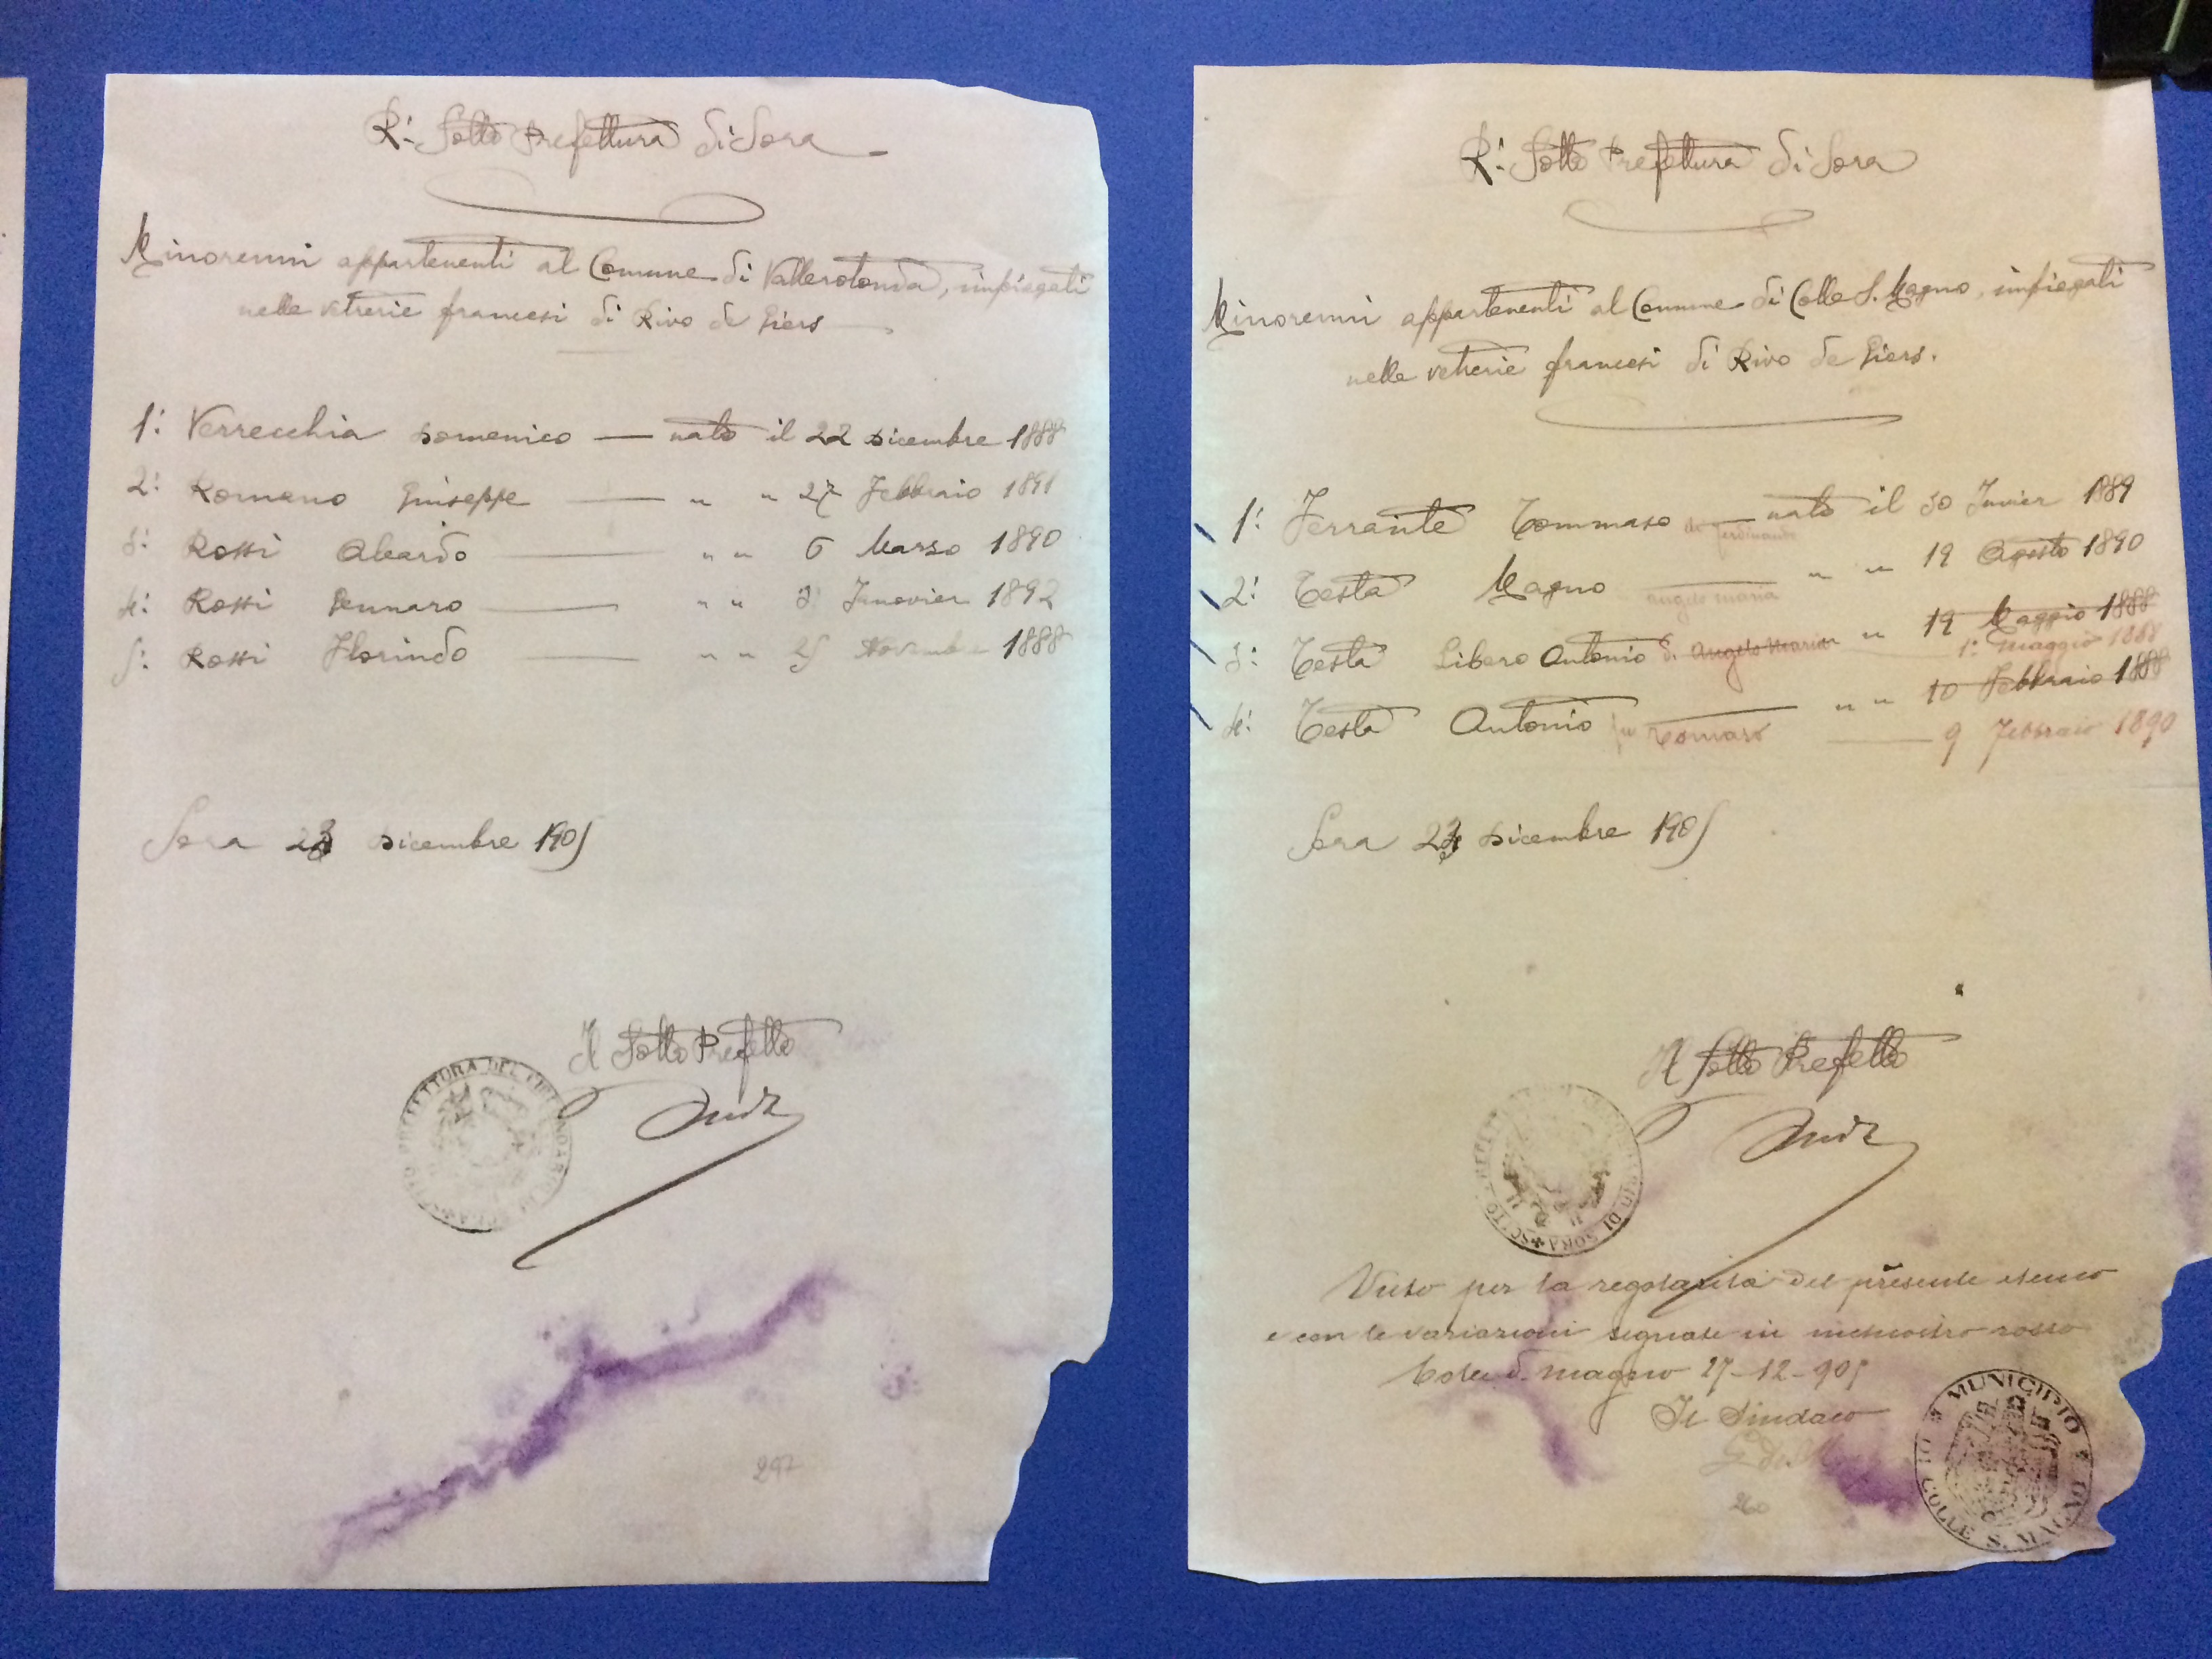 R.' Sotto Prefettura di Sora
Minorenni appartenenti al Comune di Vallerotonda, impiegati
nelle vetrerie francesi di Rivo de Giers
1.' Verrecchia Domenico — nato il 22 Dicembre 1888
2.' Romano Giuseppe — " " 27 Febbraio 1891
3.' Rossi Aleardo — " " 6 Marzo 1890
4.' Rossi Gennaro — " " 3 Janovier 1892
5.' Rossi Florindo — " " 25 Novembre 1888
Sora 23 Dicembre 1905
Il Sotto Prefetto
297
R.' Sotto Prefettura di Sora
Minorenni appartenenti al Comune di Colle S. Magno, impiegati
nelle vetrerie francesi di Rivo de Giers.
1.' Ferrante Tommaso di Ferdinando — nato il 30 Juvier 1889
2.' Testa Magno angelo maria " " 19 Agosto 1890
3.' Testa Libero Antonio di Angelo Maria " " 19 Maggio 1888
1.' maggio 1888
4.' Testa Antonio fu Tomaso " " 10 Febbraio 1888
9 Febbraio 1890
Sora 23 Dicembre 1905
Il Sotto Prefetto
SOTTO PREFETTURA DI SORA
Visto per la regolarità del presente elenco
e con le variazioni segnate in inchiostro rosso
Colle S. Magno 27-12-905
Il Sindaco
260
MUNICIPIO DI COLLE S. MAGNO